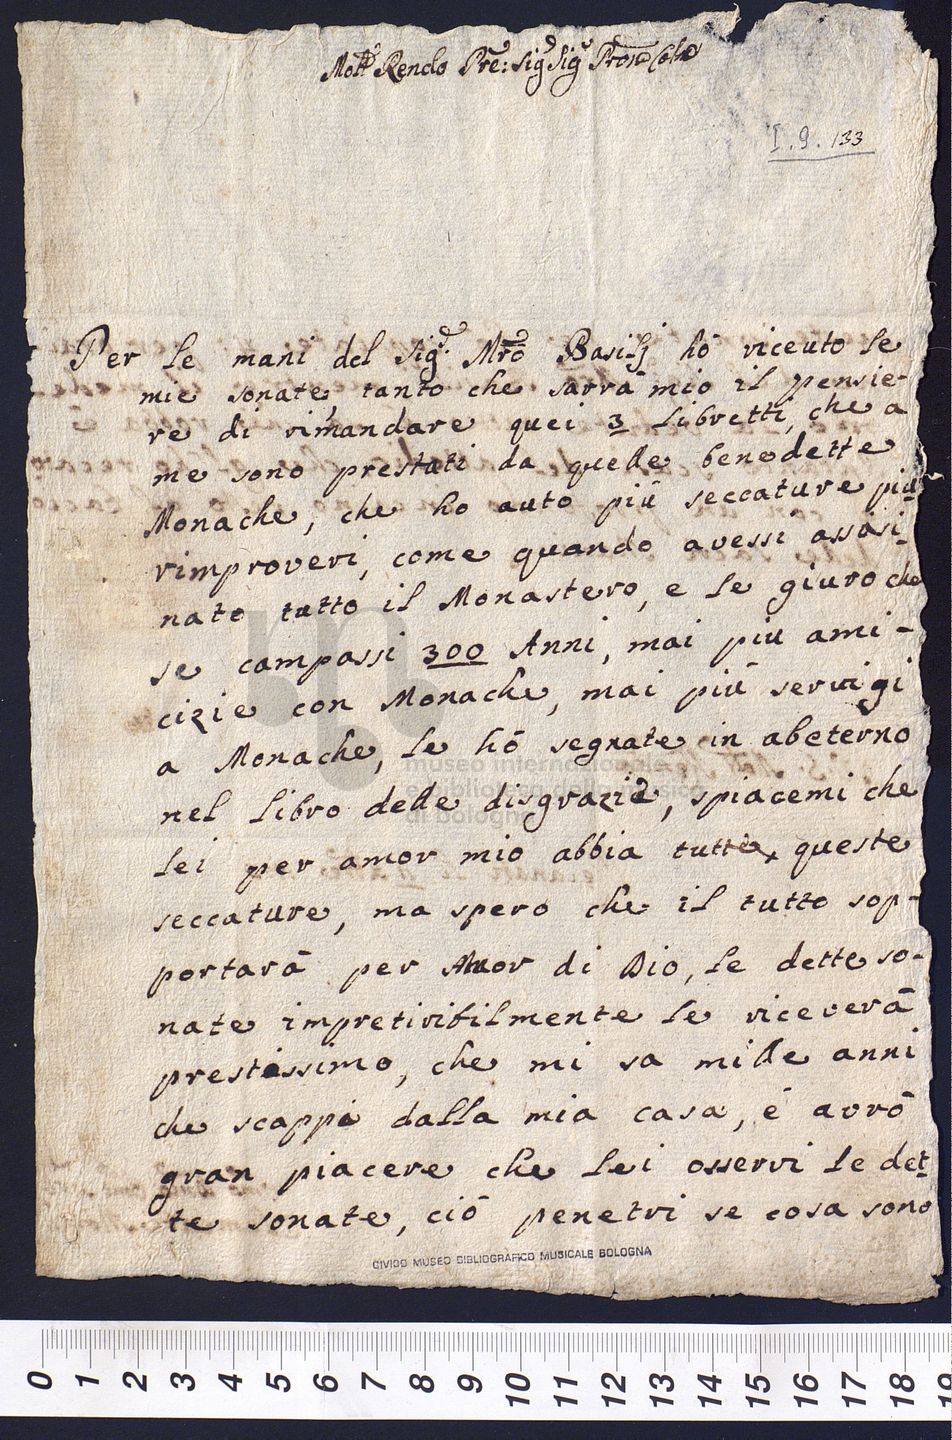 Molto Rendo Pre: Sig Sig Pron Colmo
I. 9. 133
Per le mani del Sig. Mro Basilj hò riceuto le
mie sonate tanto che sarrà mio il pensie-
re di rimandare quei 3 libretti, che a
me sono prestati da quelle benedette
Monache, che ho auto più seccature più
rimproveri, come quando avessi assasi-
nato tutto il Monastero, e le giuro che
se campassi 300 Anni, mai più ami-
cizie con Monache, mai più servigi
a Monache, le hò segnate in abeterno
nel libro delle disgrazie, spiacemi che
lei per amor mio abbia tutte queste
seccature, ma spero che il tutto sop-
portarà per Amor di Dio, le dette so-
nate impretiribilmente le riceverà
prestissimo, che mi sa mille anni
che scappi dalla mia casa, è avrò
gran piacere che lei osservi le det-
te sonate, ciò penetri se cosa sono
CIVICO MUSEO BIBLIOGRAFICO MUSICALE BOLOGNA
museo internazionale
e biblioteca della musica
di bologna
0 1 2 3 4 5 6 7 8 9 10 11 12 13 14 15 16 17 18 19